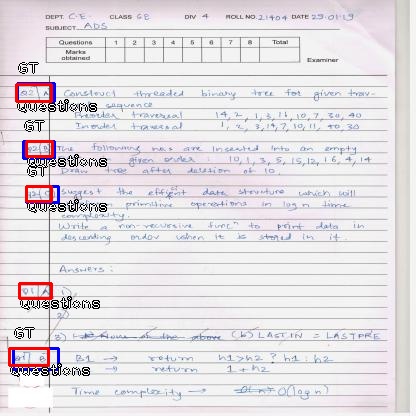 DEPT. C.E. CLASS GB DIV 4 ROLL NO. 21404 DATE 29.01.19
SUBJECT ADS
Questions 1 2 3 4 5 6 7 8 Total
Marks obtained
Examiner
GT
Q2 A Construct threaded binary tree for given trav-
Questions sequence
Preorder traversal 14, 2, 1, 3, 11, 10, 7, 30, 40
GT Inorder traversal 1, 2, 3, 14, 7, 10, 11, 40, 30
Q2 B The following nos are inserted into an empty
Questions given order : 10, 1, 3, 5, 15, 12, 16, 4, 14
GT Draw tree after deletion of 10.
Q2 C Suggest the efficient data structure which will
Questions primitive operations in log n time
complexity.
Write a non-recursive funcⁿ to print data in
descending order when it is stored in it.
Answers :
Q1 A 1)
Questions
2)
3) None of the above (b) LAST.IN = LAST.PRE
GT
Q1 B B1 → return h1>h2 ? h1 : h2
Questions → return 1 + h2
Time complexity → O(log n)